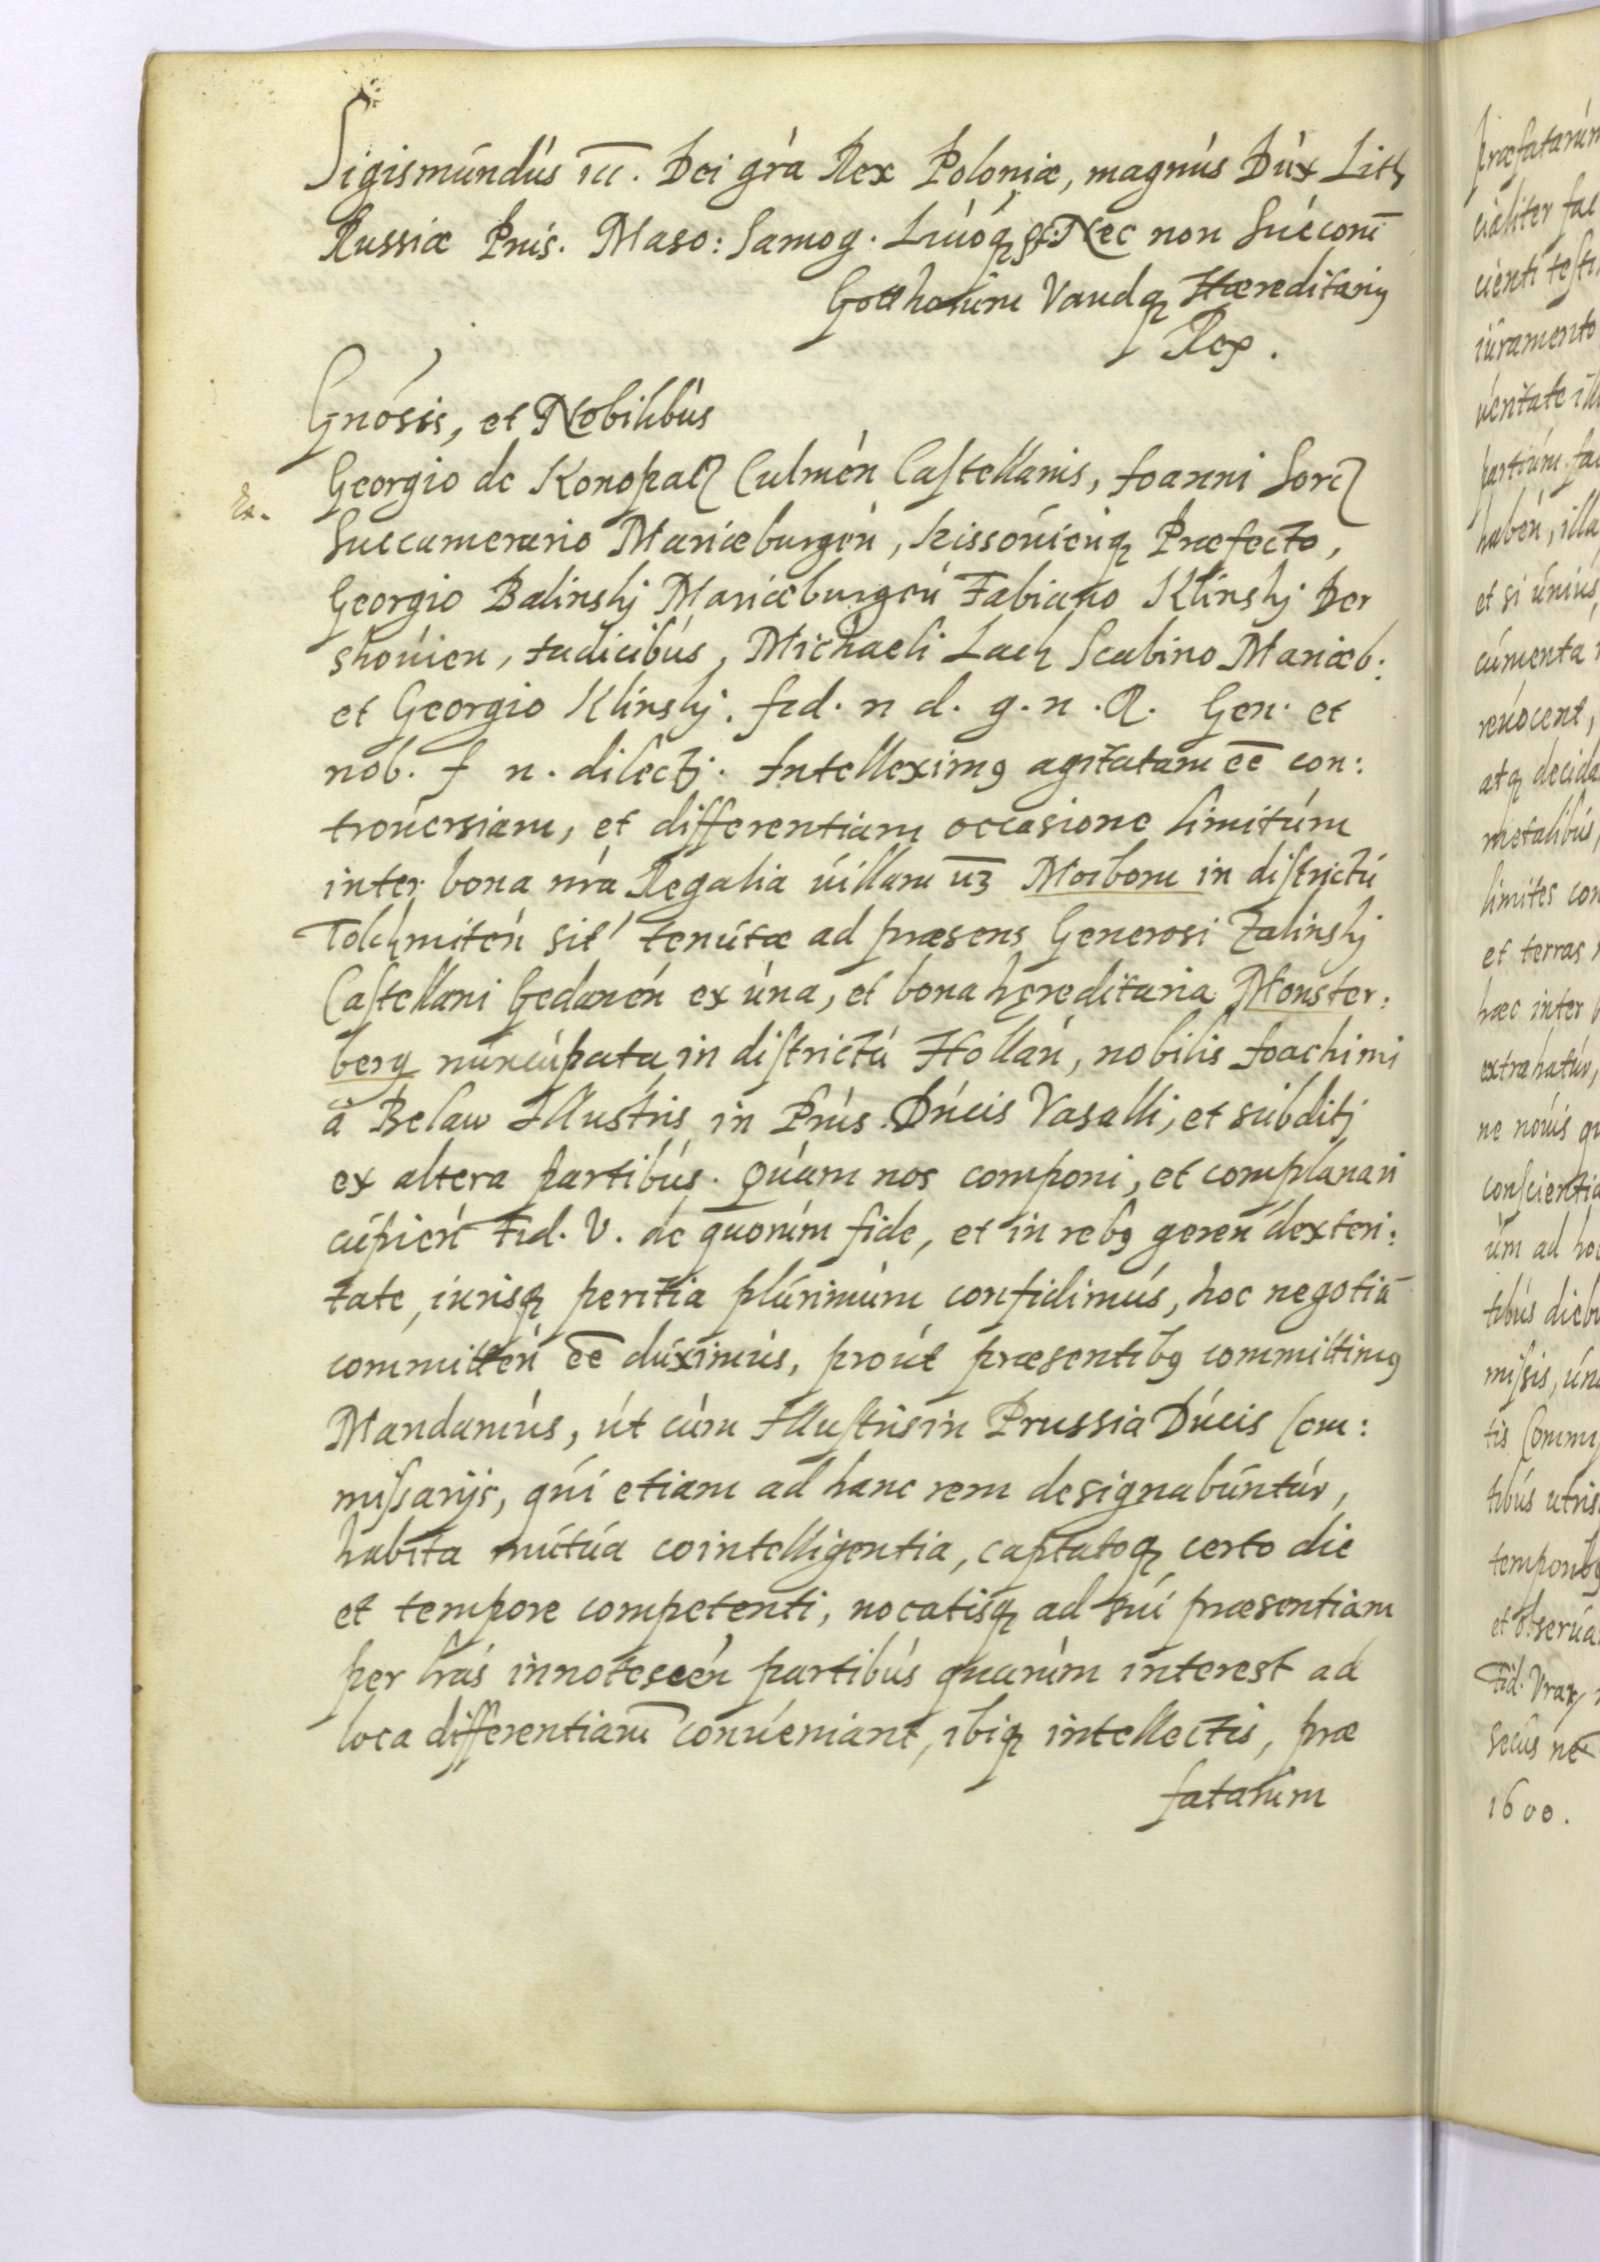 Sigismúndús III. Dei grà Rex Poloniæ, magnús Dúx Lith
Russiæ Prús. Maso: Samog. Liúóq̨ꝫ etc. Nec non Suécorū
Gotthorúm Vandq̨ Hæreditariꝯ
Rex.
Gnósis, et Nobilibús
Georgio de Konopacz Culmén Castellanis, Joanni Sorcz
Ex.
Succamerario Mariæburgén, Kissóúienq̨ Præfecto,
Georgio Balinskj Mariæburgén Fabiano Klinskj Der
shóúien, Judicibús, Michaeli Lach Scabino Mariæb:
et Georgio Klinskj. fid. n d. g. n. R. Gen. et
nob. f n. dilectj. Intelleximꝯ agitatam ēē con:
troúersiam, et differentiam occasione limitúm
inter bona nrá Regalia úillam uꝫ Morbom in districtú
Tolchmitén sit' tenútæ ad præsens Generosi Zalinskj
Castellani Gedanén ex úna, et bona hęreditaria Monster:
berg núncúpata in districtú Hollań, nobilis Joachimi
à Belaw Illustris in Prús Dúcis Vasalli, et súbditj
ex altera partibús. Qúam nos componi, et complanari
cúpień Fid. V. de quorúm fide, et in rebꝯ geren dexteri:
tate, iurisq̨ peritia plúrimúm confidimús, hoc negotiū
committén ēē dúximús, proút præsentibꝯ committimꝯ
Mandamús, út cúm Illustris in Prussia Dúcis Com:
missarijs, qúi etiam ad hanc rem designabúntúr,
habita mútúa cointelligentia, captatoq̨ certo die
et tempore competenti, uocatisq̨ ad súi præsentiam
per lrás innotescén partibús quarúm interest ad
loca differentiarū conúeniant, ibiq̨ intellectis, præ
fatarúm
præfatarúm
cialiter fac
cienti testi
iúramento
úeritate ill
partiúm fac
habén, illa
et si únius
cúmenta
reúocent,
atq̨ decida
metalibús,
limites con
et terras
hæc inter
extrahatúr,
ne nóúis qu
conscientia
úm ad hoc
tibús diebu
missis, úna
tis Commis
tibús utris
temporibꝯ
et obserúa
Fid. Vrar
secús
1600.